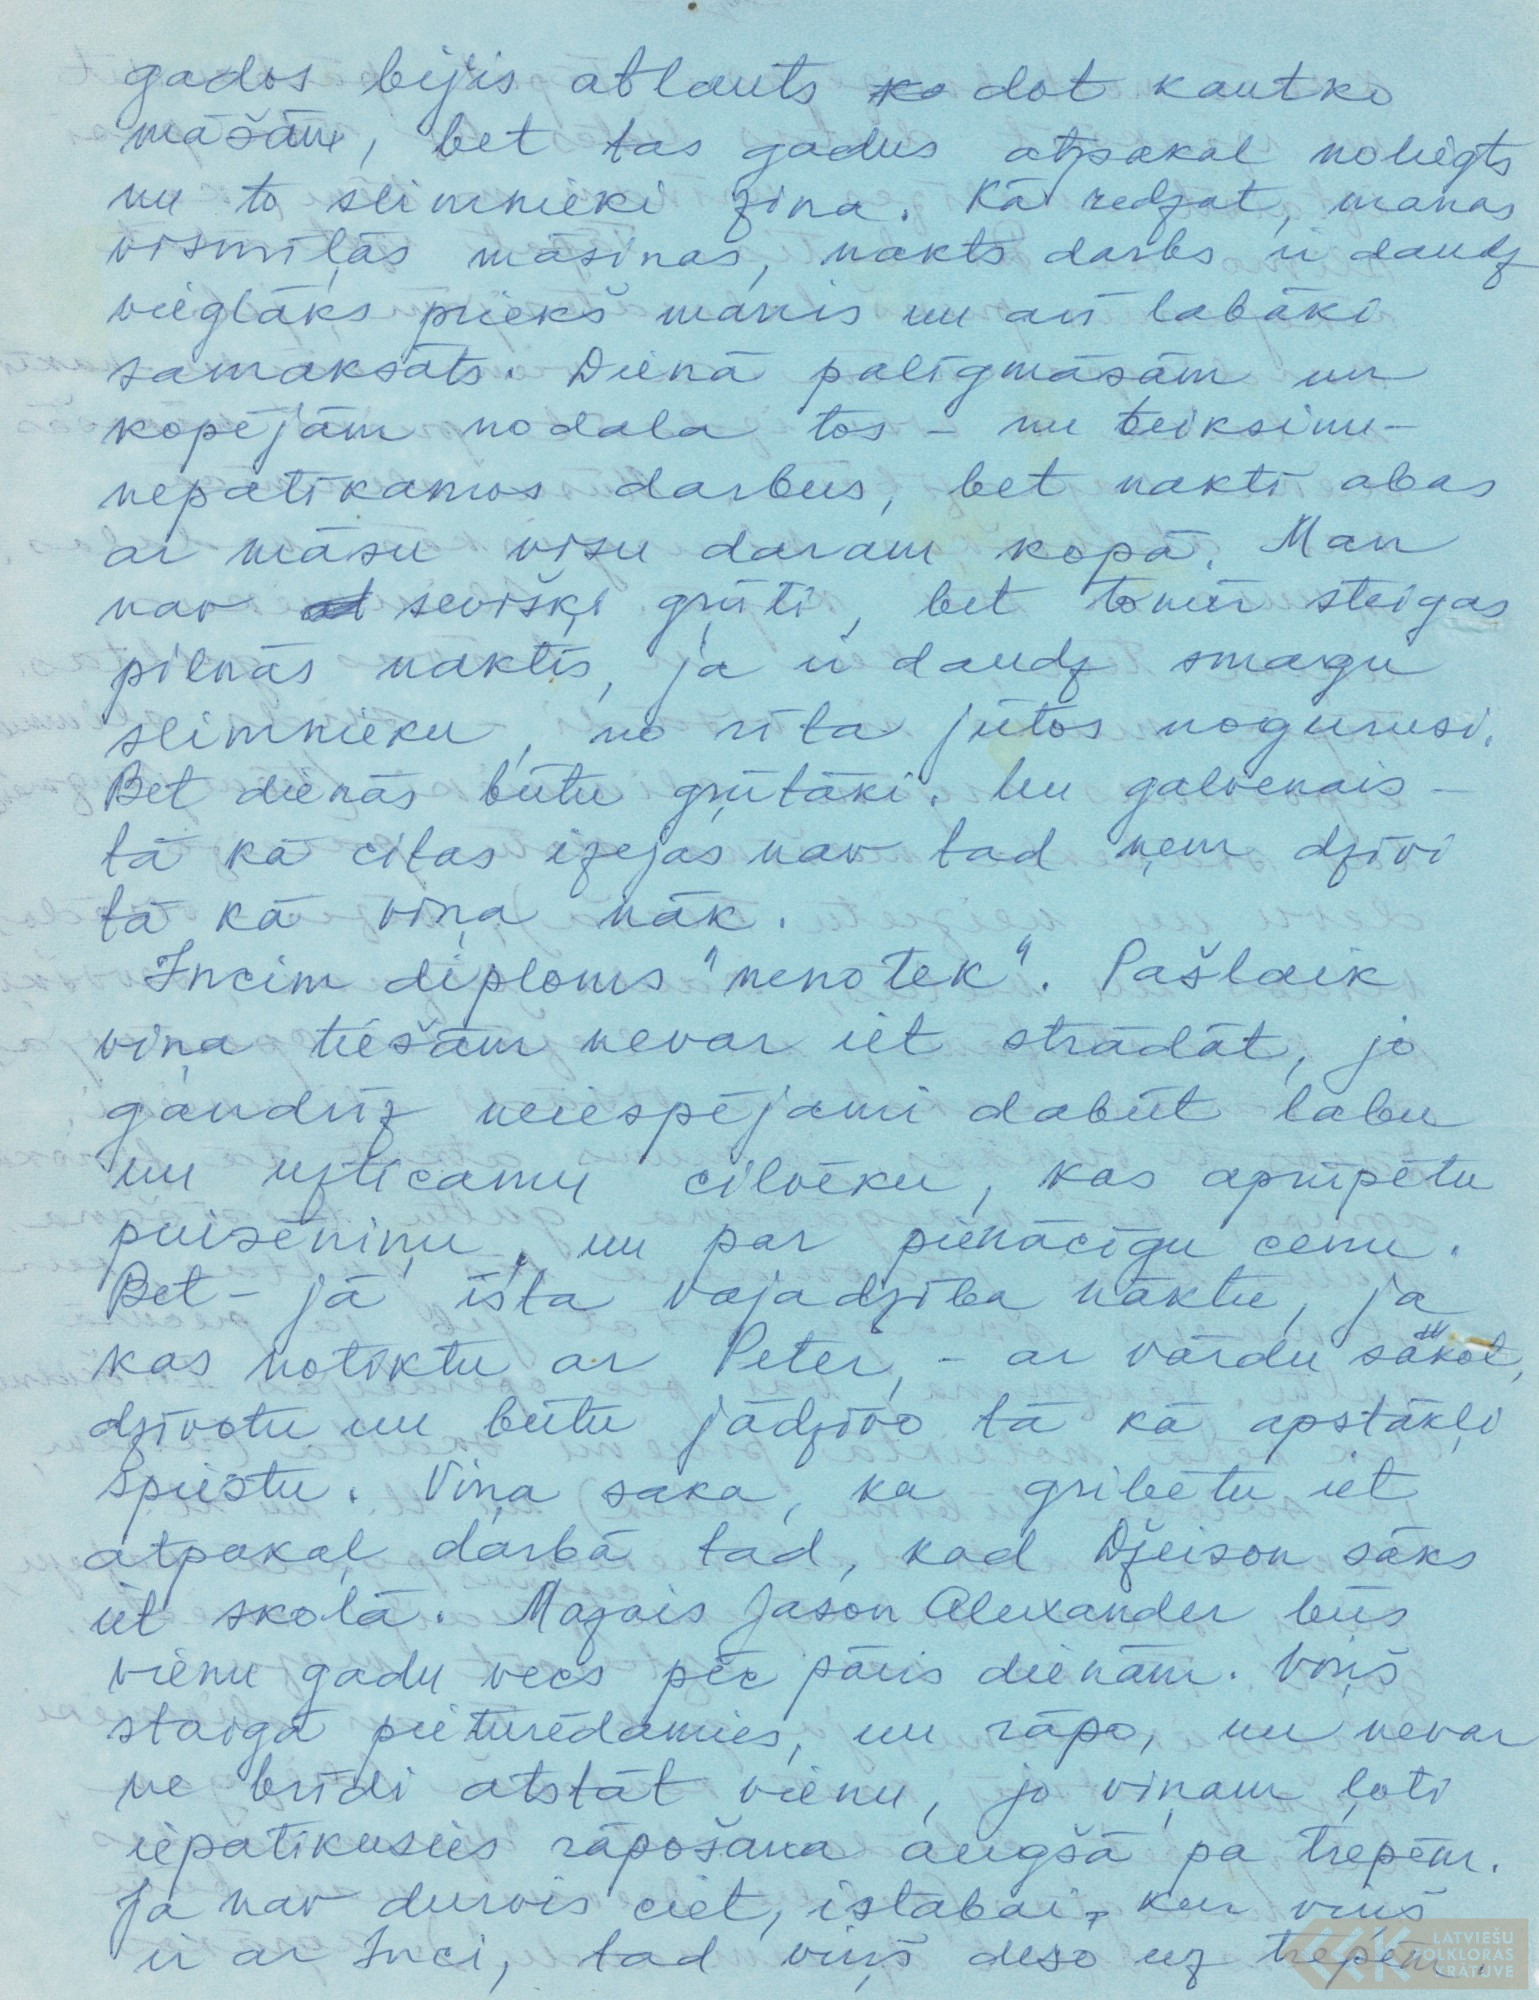 gados bijis atļauts ko dot kautko
māsām, bet tas gadus atpakaļ noliegts
un to slimnieki zina. Kā redzat, manas
vismīļās māsiņas, nakts darbs ir daudz
vieglāks priekš manis un arī labāki
samaksāts. Dienā palīgmāsām un
kopējām nodala tos – nu teiksim –
nepatīkamos darbus, bet naktī abas
ar māsu visu daram kopā. Man
nav sevišķi grūti, bet tomēr steigas
pilnās naktīs, ja ir daudz smagu
slimnieku, no rīta jūtos nogurusi.
Bet dienās būtu grūtāki. Un galvenais –
tā kā citas izejas nav tad ņem dzīvi
tā kā viņa nāk.
Incim diploms "nenotek". Pašlaik
viņa tiešām nevar iet strādāt, jo
gandrīz neiespējami dabūt labu
un uzticamu cilvēku, kas aprūpētu
puisēniņu, un par pienācīgu cenu.
Bet – jā īsta vajadzība nāktu, ja
kas notiktu ar Peter, – ar vārdu sakot,
dzīvotu un būtu jādzīvo tā kā apstākļi
spiestu. Viņa saka, ka gribētu iet
atpakaļ darbā tad, kad Džeison sāks
iet skolā. Mazais Jason Alexander būs
vienu gadu vecs pēc pāris dienām. Viņš
staigā pieturēdamies, un rāpo, un nevar
ne brīdi atstāt vienu, jo viņam ļoti
iepatikusies rāpošana augšā pa trepēm.
Ja nav durvis ciet, istabai, kur viņš
ir ar Inci, tad viņš dešo uz trepēm.
LATVIEŠU
FOLKLORAS
KRĀTUVE